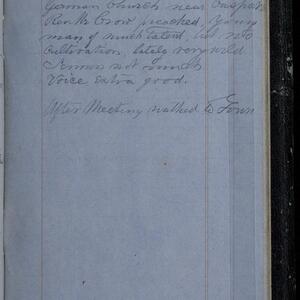 German Church near
preached, Young
man of much talent, but no
cultivation, lately very wild
not much
Voice extra good.
After Meeting walked to Town